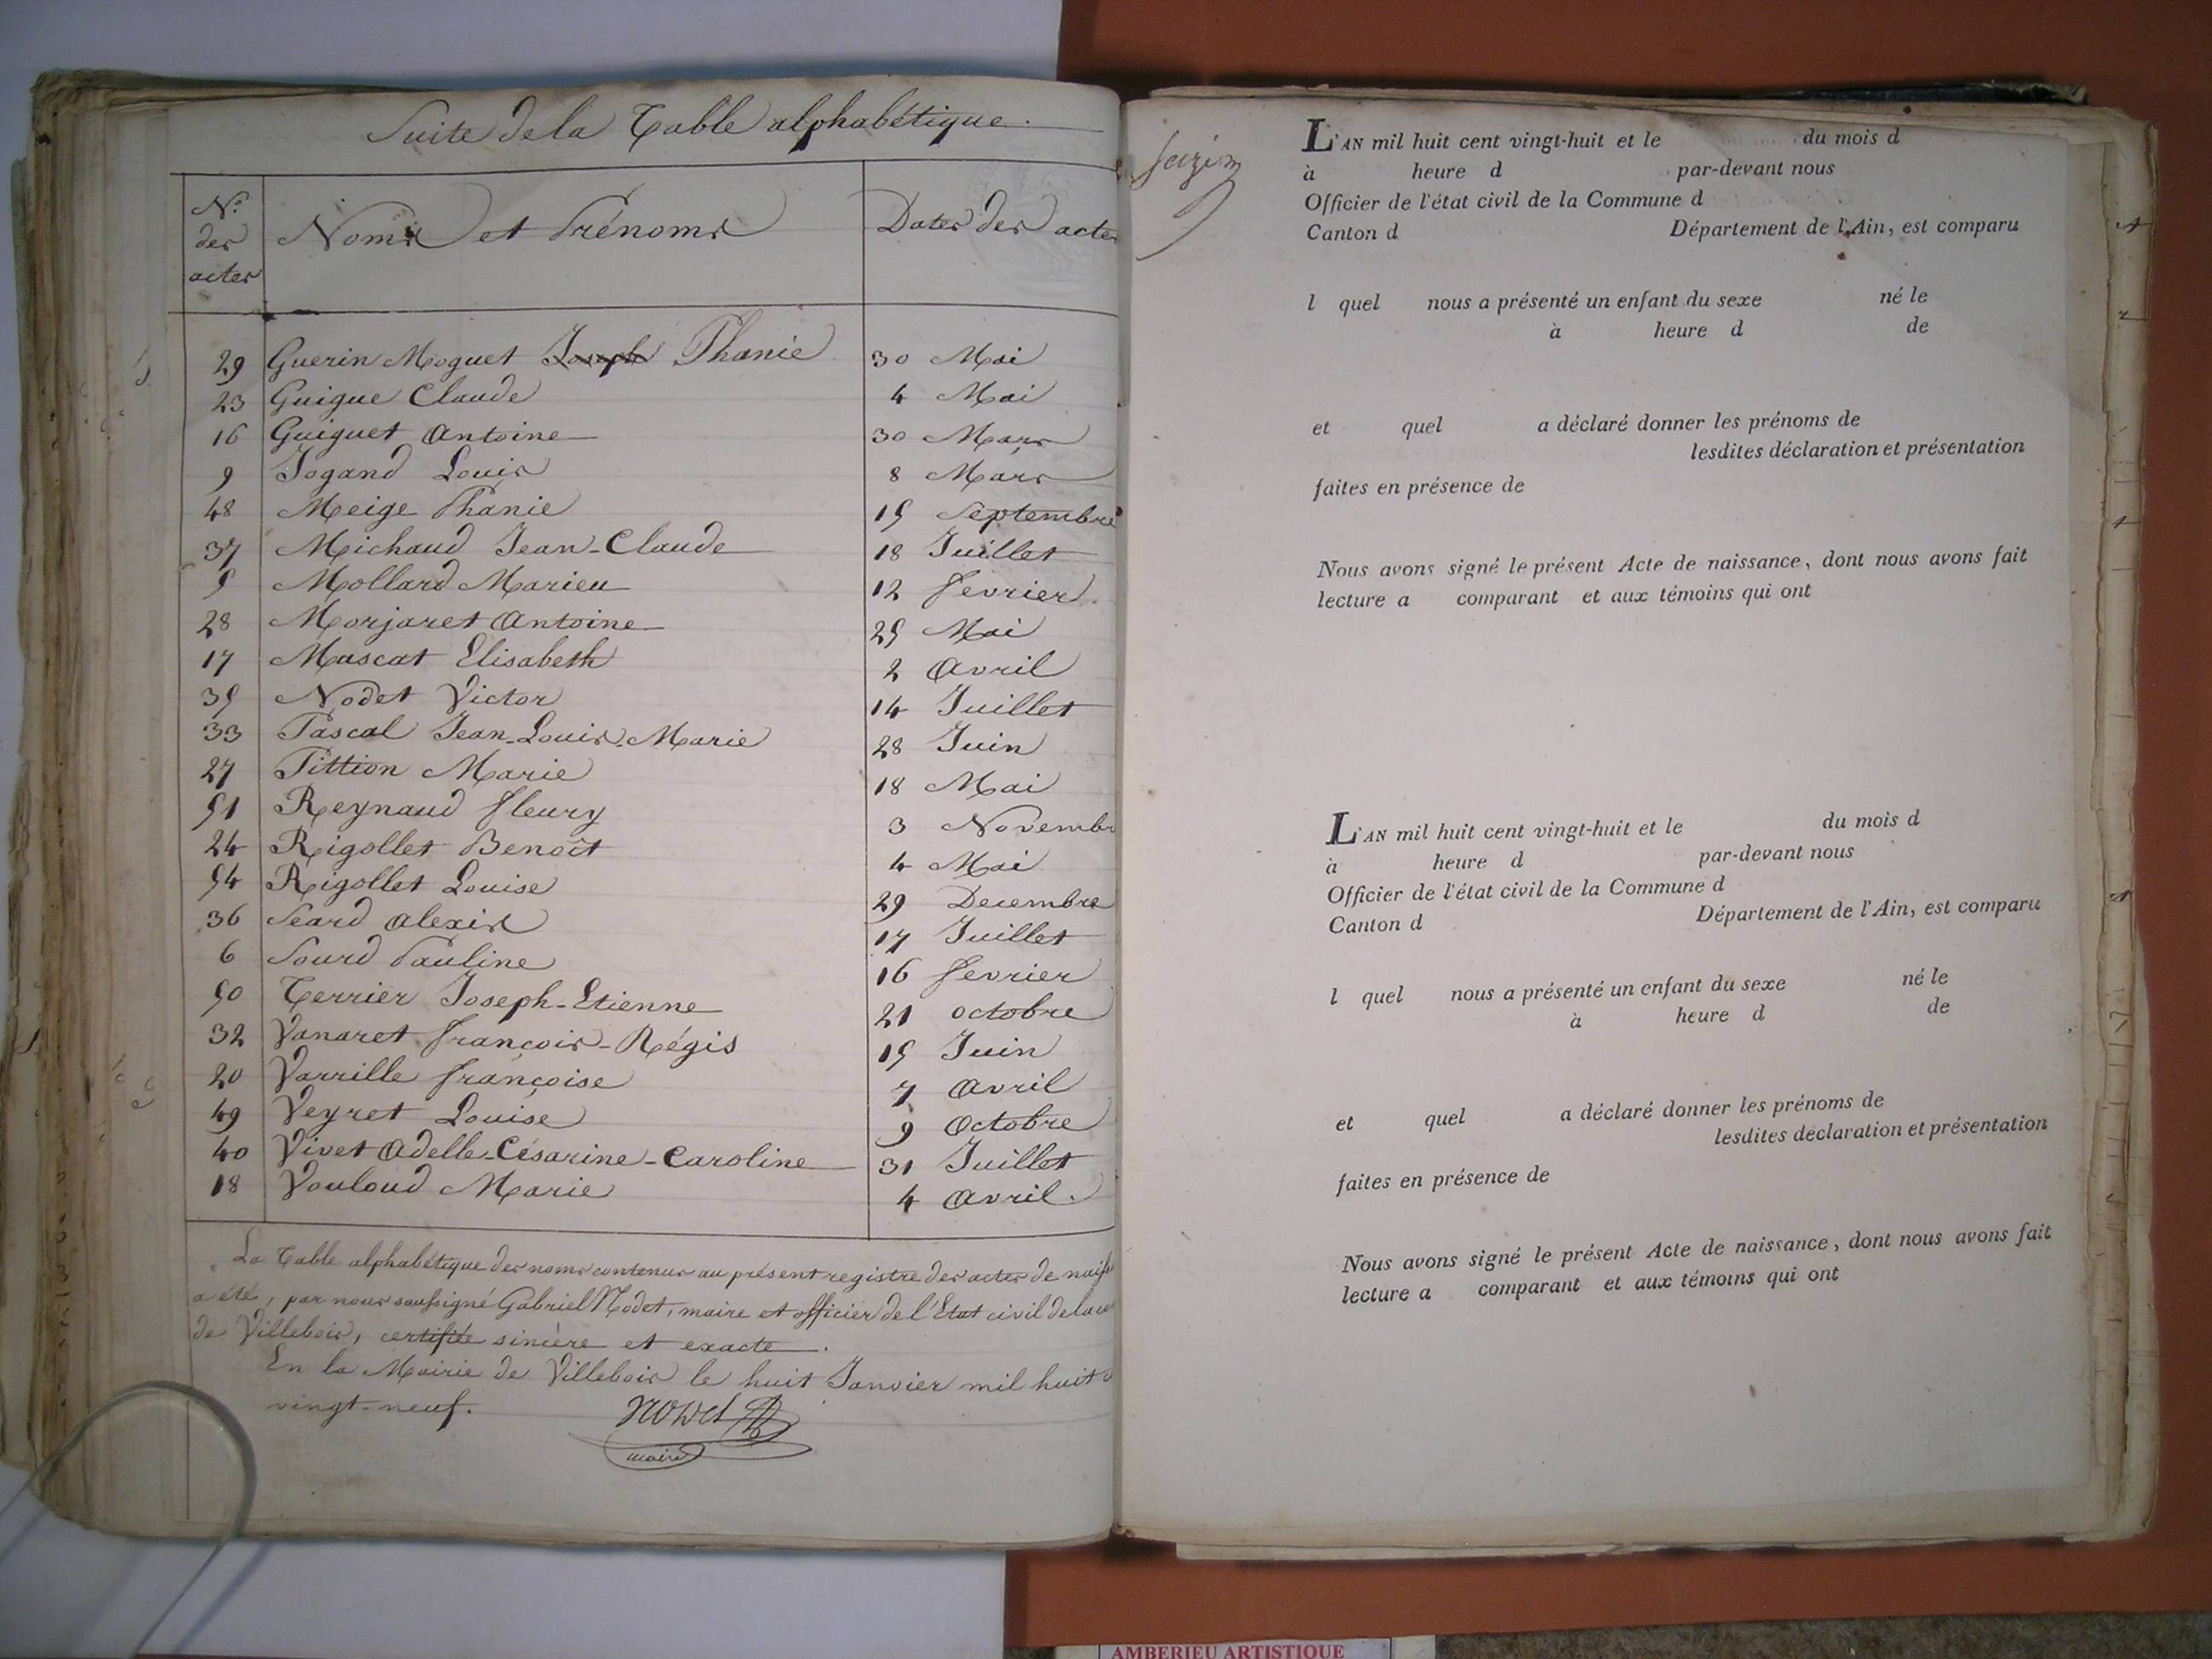 Suite de la Table alphabétique.
N.o des actes
Noms et Prénoms
Dates des actes
29 Guerin Moguet Joseph Phanie 30 Mai
23 Guigue Claude 4 Mai
16 Guiguet Antoine 30 Mars
9 Jogand Louis 8 Mars
48 Meige Phanie 15 Septembre
37 Michaud Jean-Claude 18 Juillet
5 Mollard Marieu 12 fevrier
28 Morjaret Antoine 25 Mai
17 Muscat Elisabeth 2 Avril
35 Nodet Victor 14 Juillet
33 Pascal Jean-Louis-Marie 28 Juin
27 Pittion Marie 18 Mai
51 Reynaud fleury 3 Novembr
24 Rigollet Benoit 4 Mai
54 Rigollet Louise 29 Decembre
36 Seard Alexis 17 Juillet
6 Sourd Pauline 16 fevrier
50 Terrier Joseph-Etienne 21 octobre
32 Vanaret françois-Régis 15 Juin
20 Varrille françoise 7 Avril
49 Veyret Louise 9 Octobre
40 Vivet Adelle-Césarine-Caroline 31 Juillet
18 Vouloud Marie 4 Avril.
La Table alphabétique des noms contenus au présent registre des actes de naiss
a été, par nous soussigné Gabriel Nodet, maire et officier de l'Etat civil de la
de Villebois, certifiée sincère et exacte.
En la Mairie de Villebois le huit Janvier mil huit
vingt-neuf.
Nodet
maire
L'AN mil huit cent vingt-huit et le du mois d
à heure d par-devant nous
Officier de l'état civil de la Commune d
Canton d Département de l'Ain, est comparu
l quel nous a présenté un enfant du sexe né le
à heure d de
et quel a déclaré donner les prénoms de
lesdites déclaration et présentation
faites en présence de
Nous avons signé le présent Acte de naissance, dont nous avons fait
lecture a comparant et aux témoins qui ont
L'AN mil huit cent vingt-huit et le du mois d
à heure d par-devant nous
Officier de l'état civil de la Commune d
Canton d Département de l'Ain, est comparu
l quel nous a présenté un enfant du sexe né le
à heure d de
et quel a déclaré donner les prénoms de
lesdites déclaration et présentation
faites en présence de
Nous avons signé le présent Acte de naissance, dont nous avons fait
lecture a comparant et aux témoins qui ont
AMBERIEU ARTISTIQUE